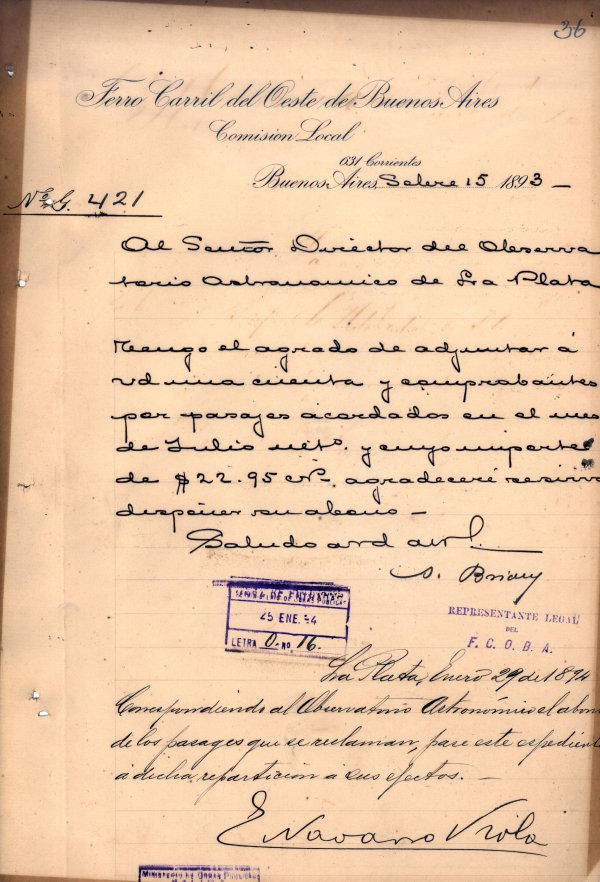 36
Ferro Carril del Oeste de Buenos Aires
Comision Local
631 Corrientes
Buenos Aires, Setbre 15 1893 —
No. G. 421
Al Señor Director del Observa
torio Astronomico de La Plata
Tengo el agrado de adjuntar á
vd una cuenta y comprobantes
por pasajes acordados en el mes
de Julio ulto. y cuyo importe
de $22.95 agradeceré se sirva
disponer su abono —
Saludo a vd
MESA DE ENTRADAS
25 ENE. 94
LETRA O. No 16.
REPRESENTANTE LEGAL
DEL
F. C. O. B. A.
La Plata, Enero 29 de 1894
Correspondiendo al Observatorio Astronómico el abon
de los pasages que se reclaman, pase este espedient
á dicha reparticion á sus efectos. —
E Navarro Viola
MINISTERIO DE OBRAS PUBLICAS